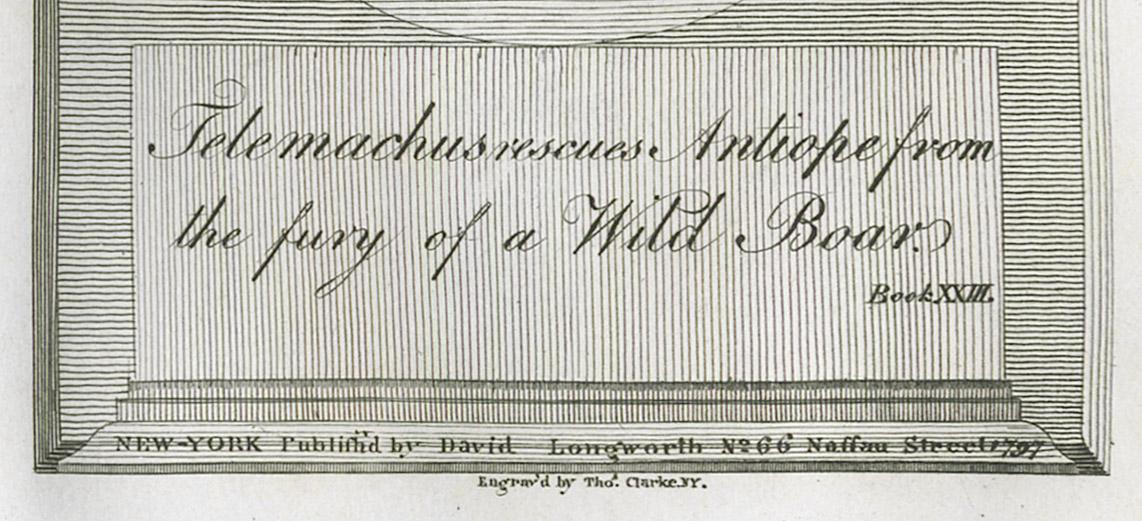 Telemachus rescues Antiope from
the fury of a Wild Boar.
Book XXIII.
NEW-YORK Publish'd by David Longworth No. 66 Naſsau Street 1797
Engrav'd by Thos. Clarke. N.Y.